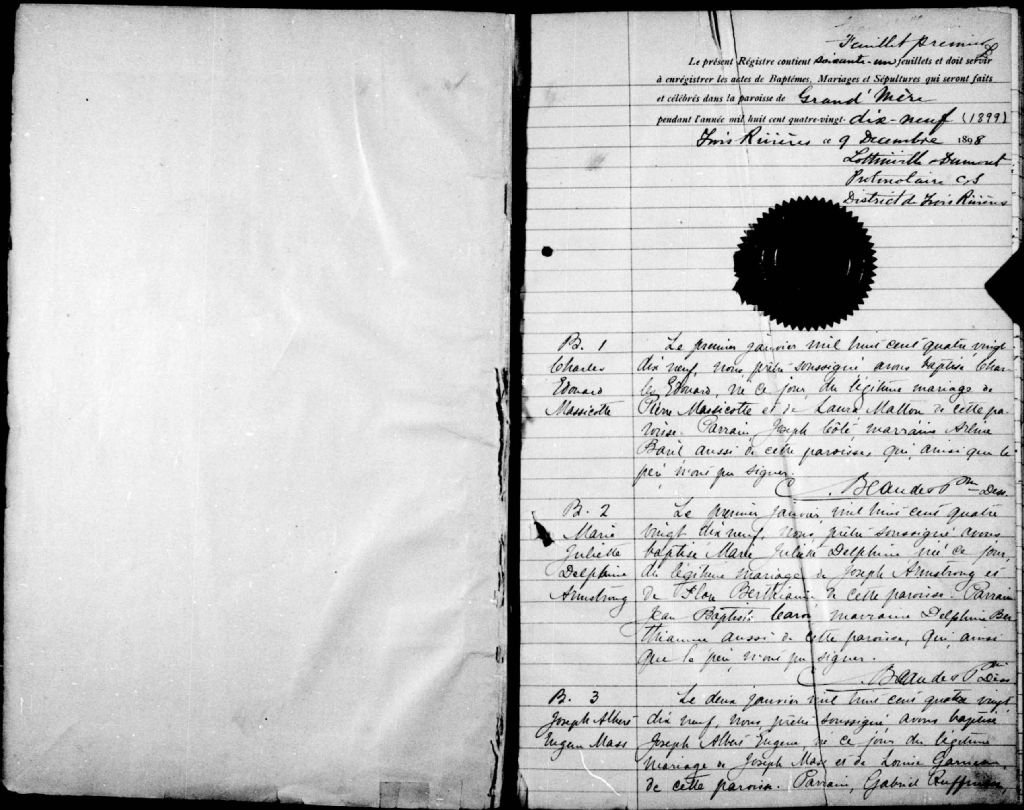 Feuillet premier
Le présent Régistre contient soixante-un feuillets et doit servir
à enrégistrer les actes de Baptêmes, Mariages et Sépultures qui seront faits
et célébrés dans la paroisse de Grand'Mère
pendant l'année mil huit cent quatre-vingt-dix-neuf (1899)
Trois Rivières ce 9 Decembre 1898
Lottinville & Dumont
Protonotaire C.S
District de Trois Rivières
B. 1
Charles
Edouard
Massicotte
Le premier janvier mil huit cent quatre vingt
dix neuf, nous prêtre soussigné avons baptisé Char-
les Edouard, né ce jour du légitime mariage de
Pierre Massicotte et de Laura Matton de cette pa-
roisse. Parrain, Joseph Côté, marraine
Baril aussi de cette paroisse, qui, ainsi que le
père, n'ont pu signer.
Ptre Dess.
B. 2
Marie
Juliette
Delphine
Armstrong
Le premier janvier, mil huit cent quatre
vingt dix neuf, nous, prêtre soussigné avons
baptisé Marie Juliette Delphine née ce jour,
du légitime mariage de Joseph Armstrong et
de Flore Berthiaume de cette paroisse. Parrain
Jean Baptiste Caron, marraine Delphine Ber-
thiaume aussi de cette paroisse, qui, ainsi
que le père, n'ont pu signer.
Ptre Dess
B. 3
Joseph Albert
Eugène Masse
Le deux janvier mil huit cent quatre vingt
dix neuf, nous, prêtre soussigné avons baptisé
Joseph Albert Eugène, né ce jour du légitime
mariage de Joseph Masse et de Louise Garneau,
de cette paroisse. Parrain, Gabriel